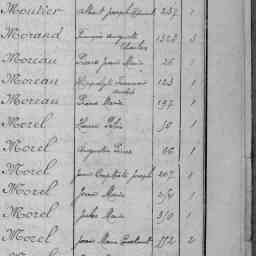 Moutier Albert Joseph 237 1
Morand François Auguste Charles 1323 3
Moreau Pierre Jean Marie 26 1
Moreau Hippolyte 123 1
Moreau Pierre Marie 197 1
Morel Henri 50 1
Morel Augustin Pierre 66 1
Morel Jean Baptiste Joseph 207 1
Morel Jean Marie 1
Morel Jules Marie 310 1
Morel Jean Marie 772 2